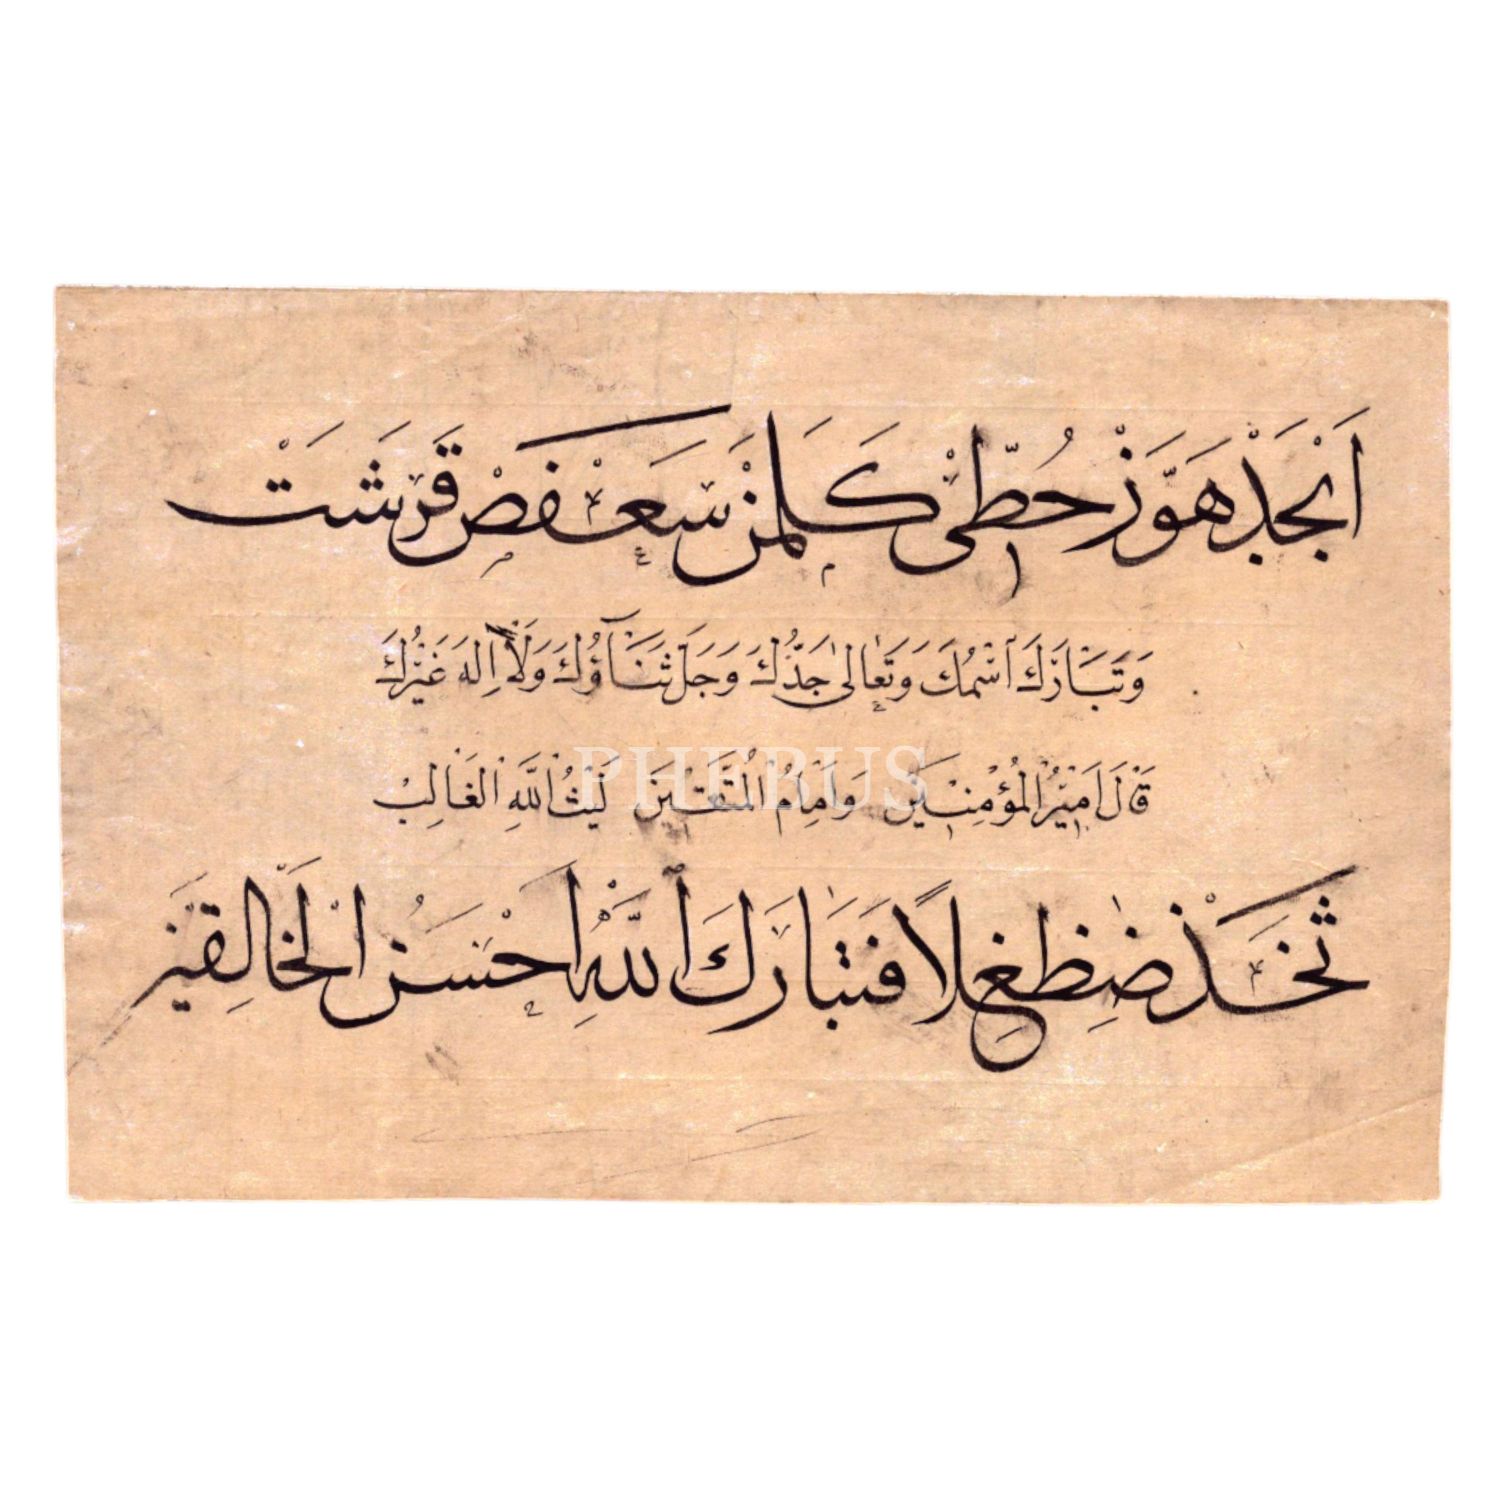 اَبْجَدْ هَوَّزْ حُطِّىْ كَلَمَنْ سَعَفَصْ قَرَشَتْ
وَتَبَارَكَ اسْمُكَ وَتَعَالٰى جَدُّكَ وَجَلَّ ثَنَآؤُكَ وَلَآ اِلٰهَ غَيْرُكَ
قَالَ اَمِيْرُ الْمُؤْمِنِيْنَ وَاِمَامُ الْمُتَّقِيْنَ لَيْثُ اللّٰهِ الْغَالِبْ
PHEBUS
ثَخَّذْ ضَظِغِلًا فَتَبَارَكَ اللّٰهُ اَحْسَنُ الْخَالِقِيْنَ